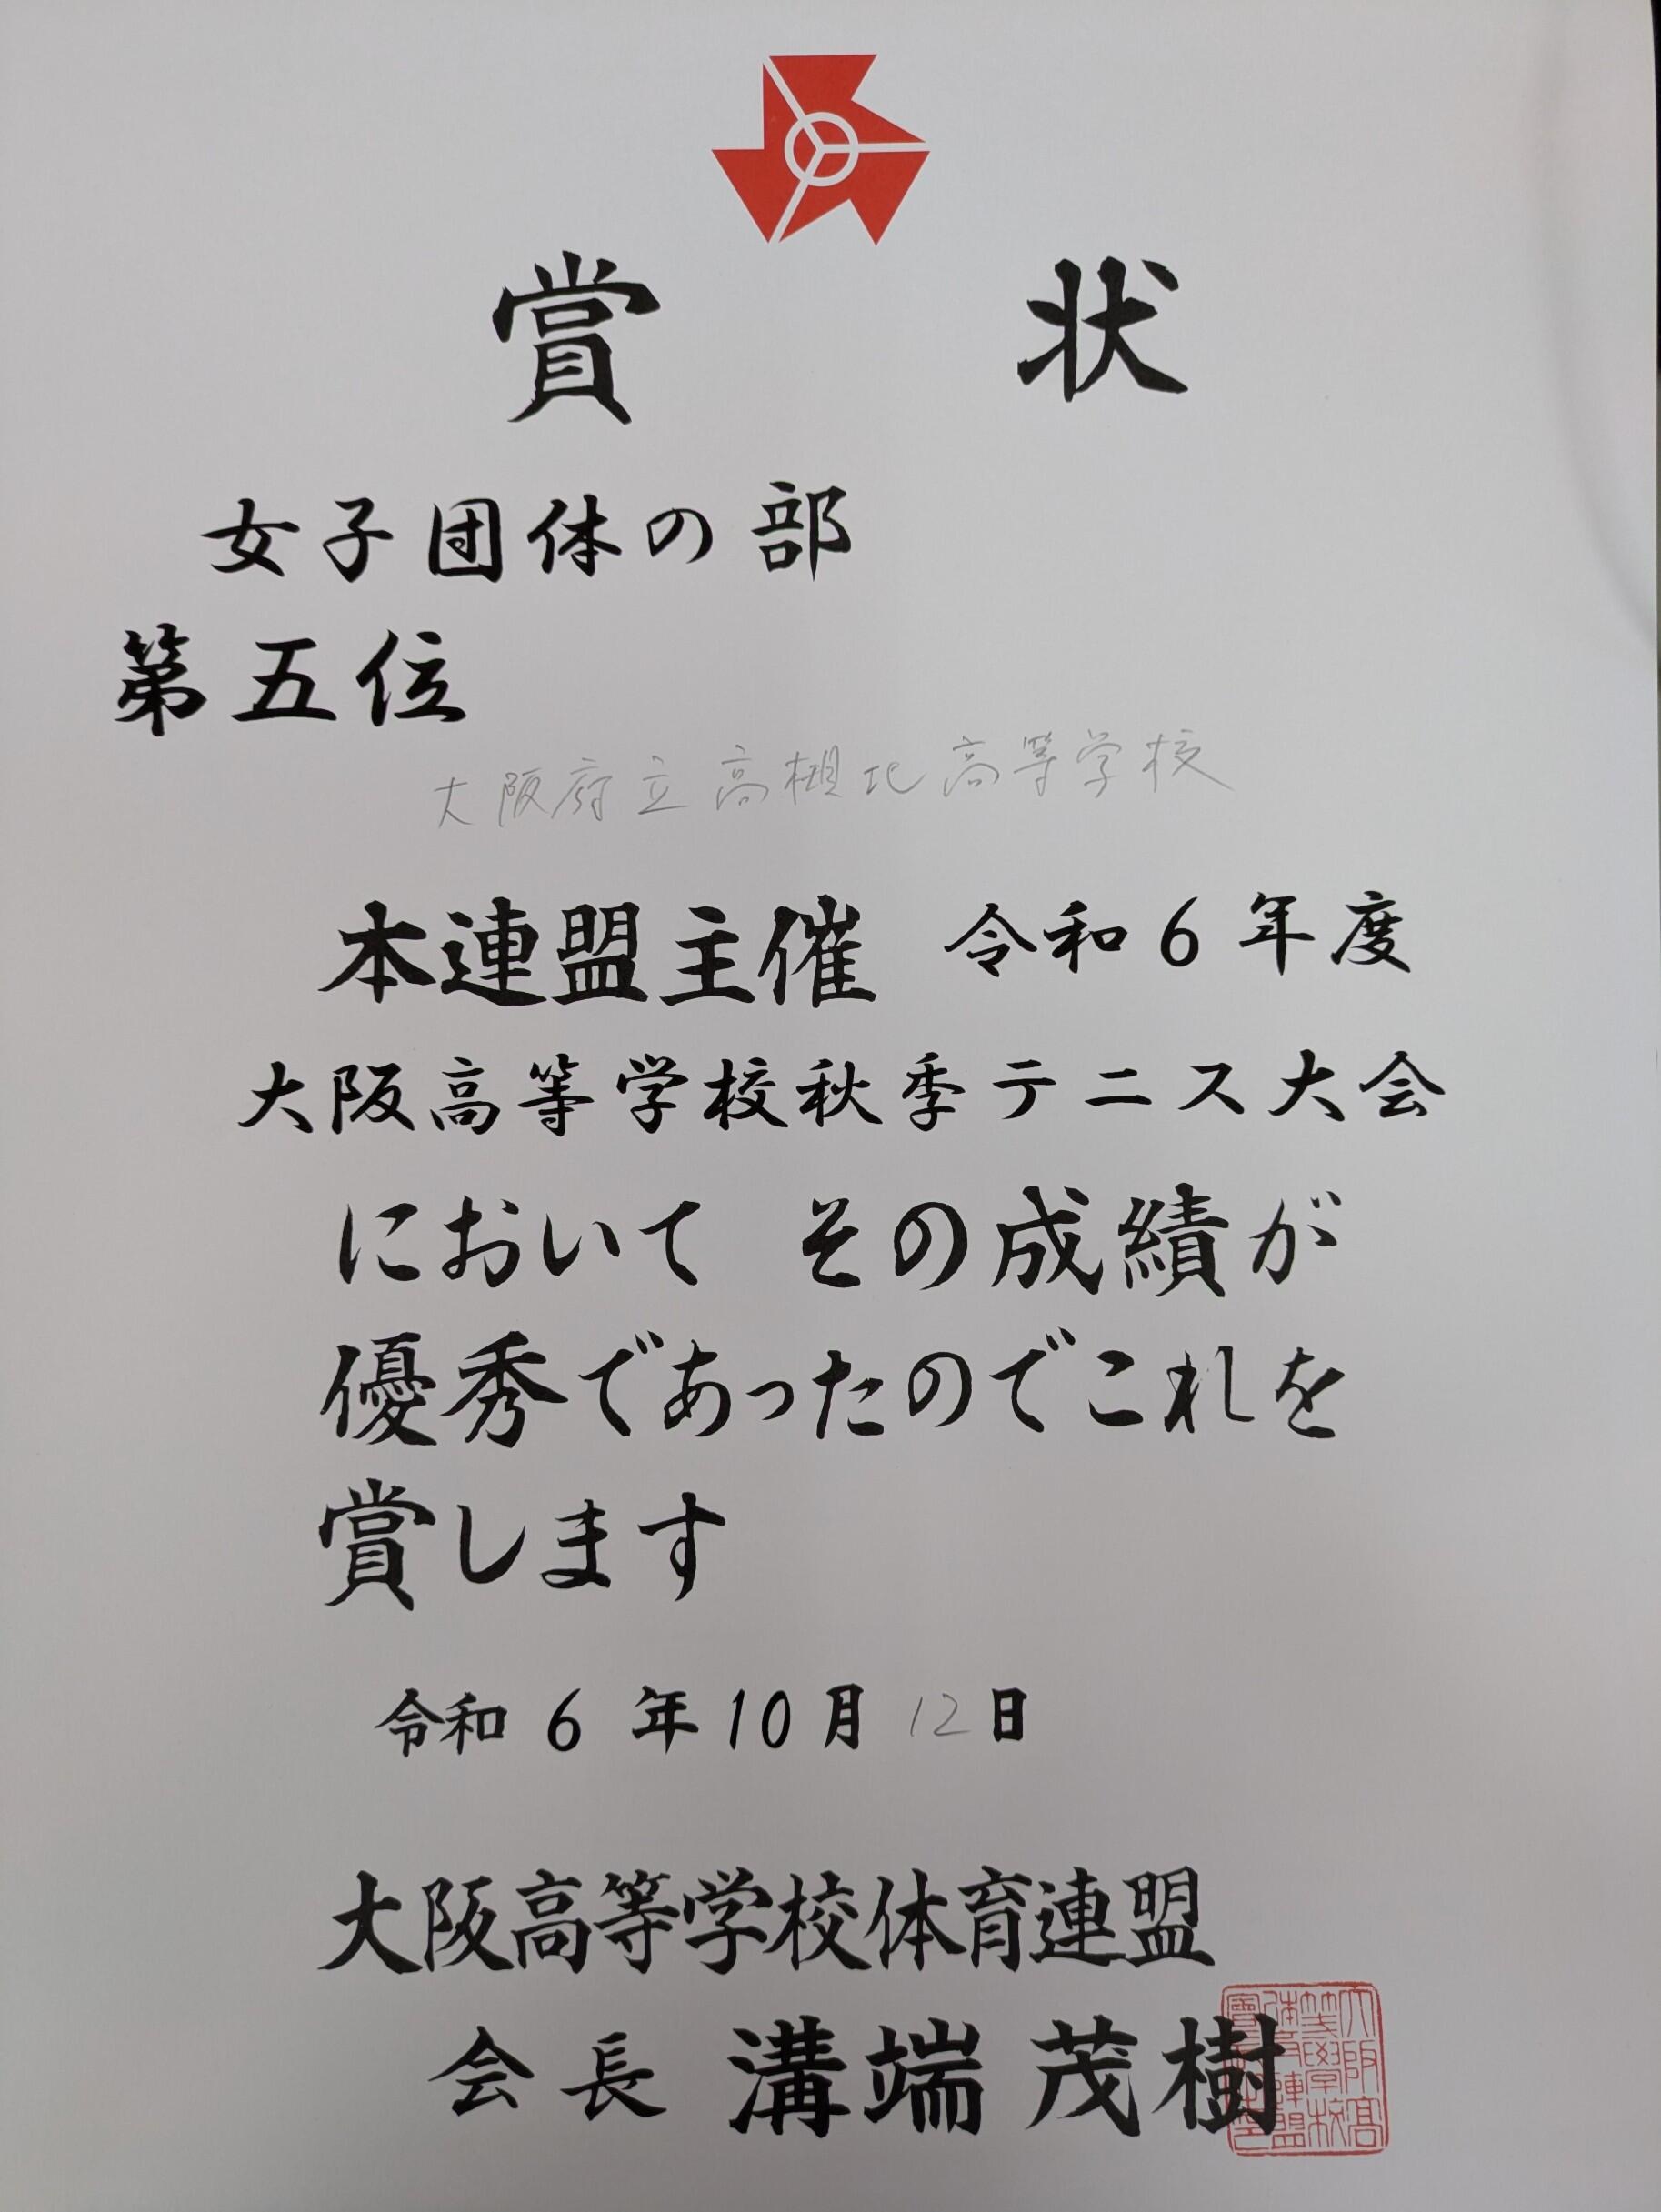 賞状
女子団体の部
第五位
大阪府立高槻北高等学校
本連盟主催 令和6年度
大阪高等学校秋季テニス大会
において その成績が
優秀であったのでこれを
賞します
令和6年10月12日
大阪高等学校体育連盟
会長 溝端茂樹